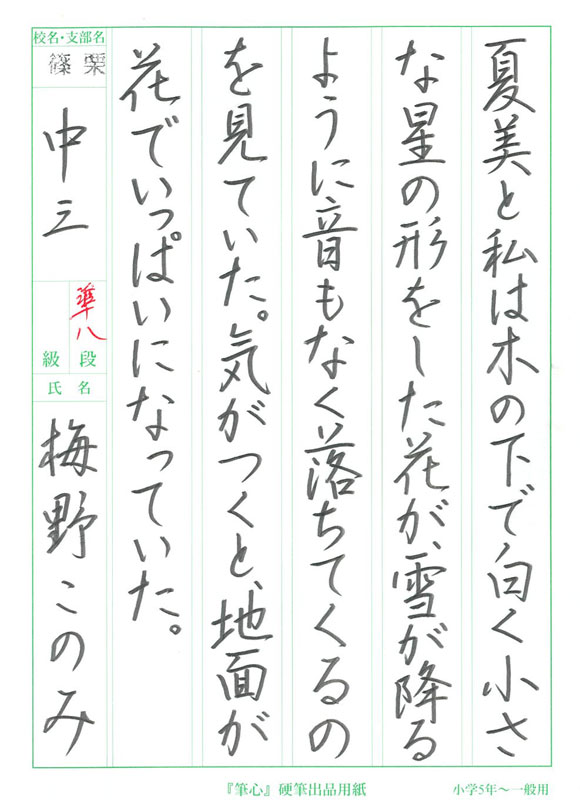 夏美と私は木の下で白く小さ
な星の形をした花が、雪が降る
ように音もなく落ちてくるの
を見ていた。気がつくと、地面が
花でいっぱいになっていた。
校名・支部名
篠栗
中三
準八
段
級
氏名
梅野このみ
『筆心』硬筆出品用紙
小学5年〜一般用